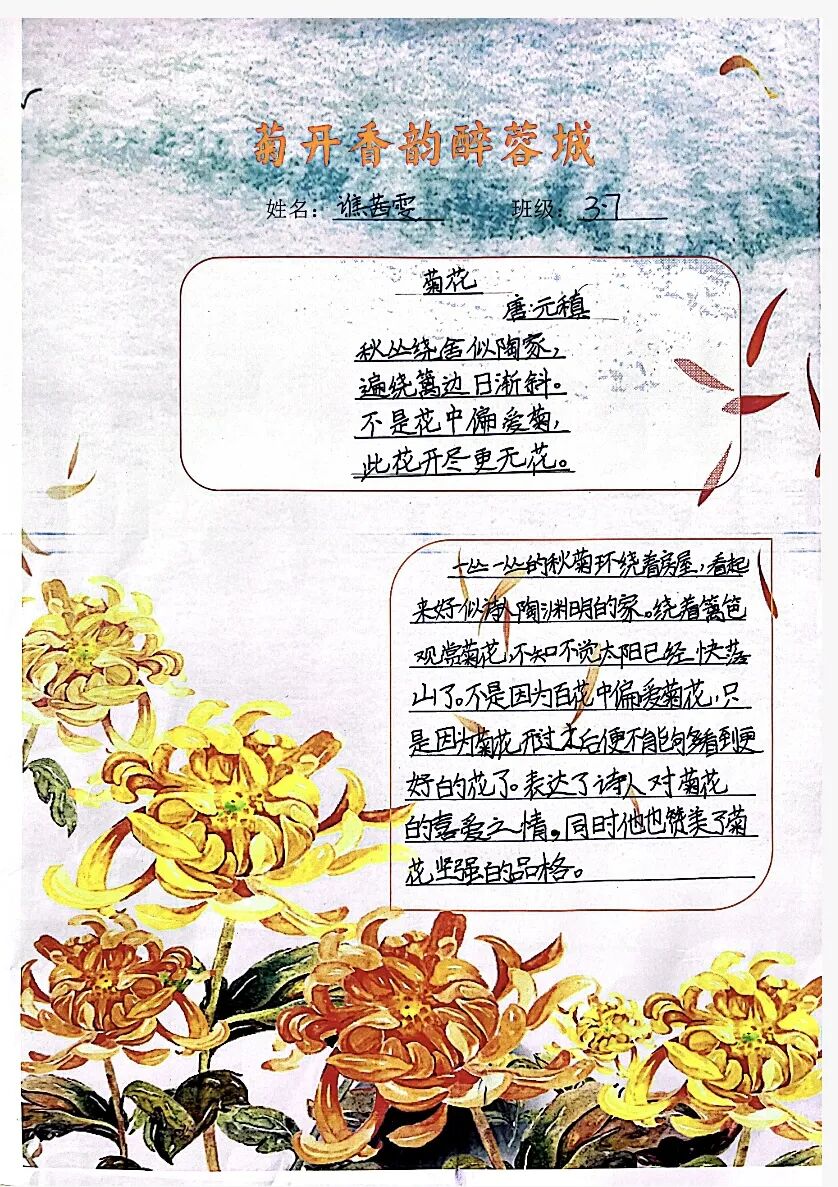 菊开香韵醉蓉城
姓名：谯茜雯 班级：3.7
菊花
唐·元稹
秋丛绕舍似陶家，
遍绕篱边日渐斜。
不是花中偏爱菊，
此花开尽更无花。
一丛一丛的秋菊环绕着房屋，看起
来好似诗人陶渊明的家。绕着篱笆
观赏菊花，不知不觉太阳已经快落
山了。不是因为百花中偏爱菊花，只
是因为菊花开过之后便不能够看到更
好的花了。表达了诗人对菊花
的喜爱之情。同时他也赞美了菊
花坚强的品格。